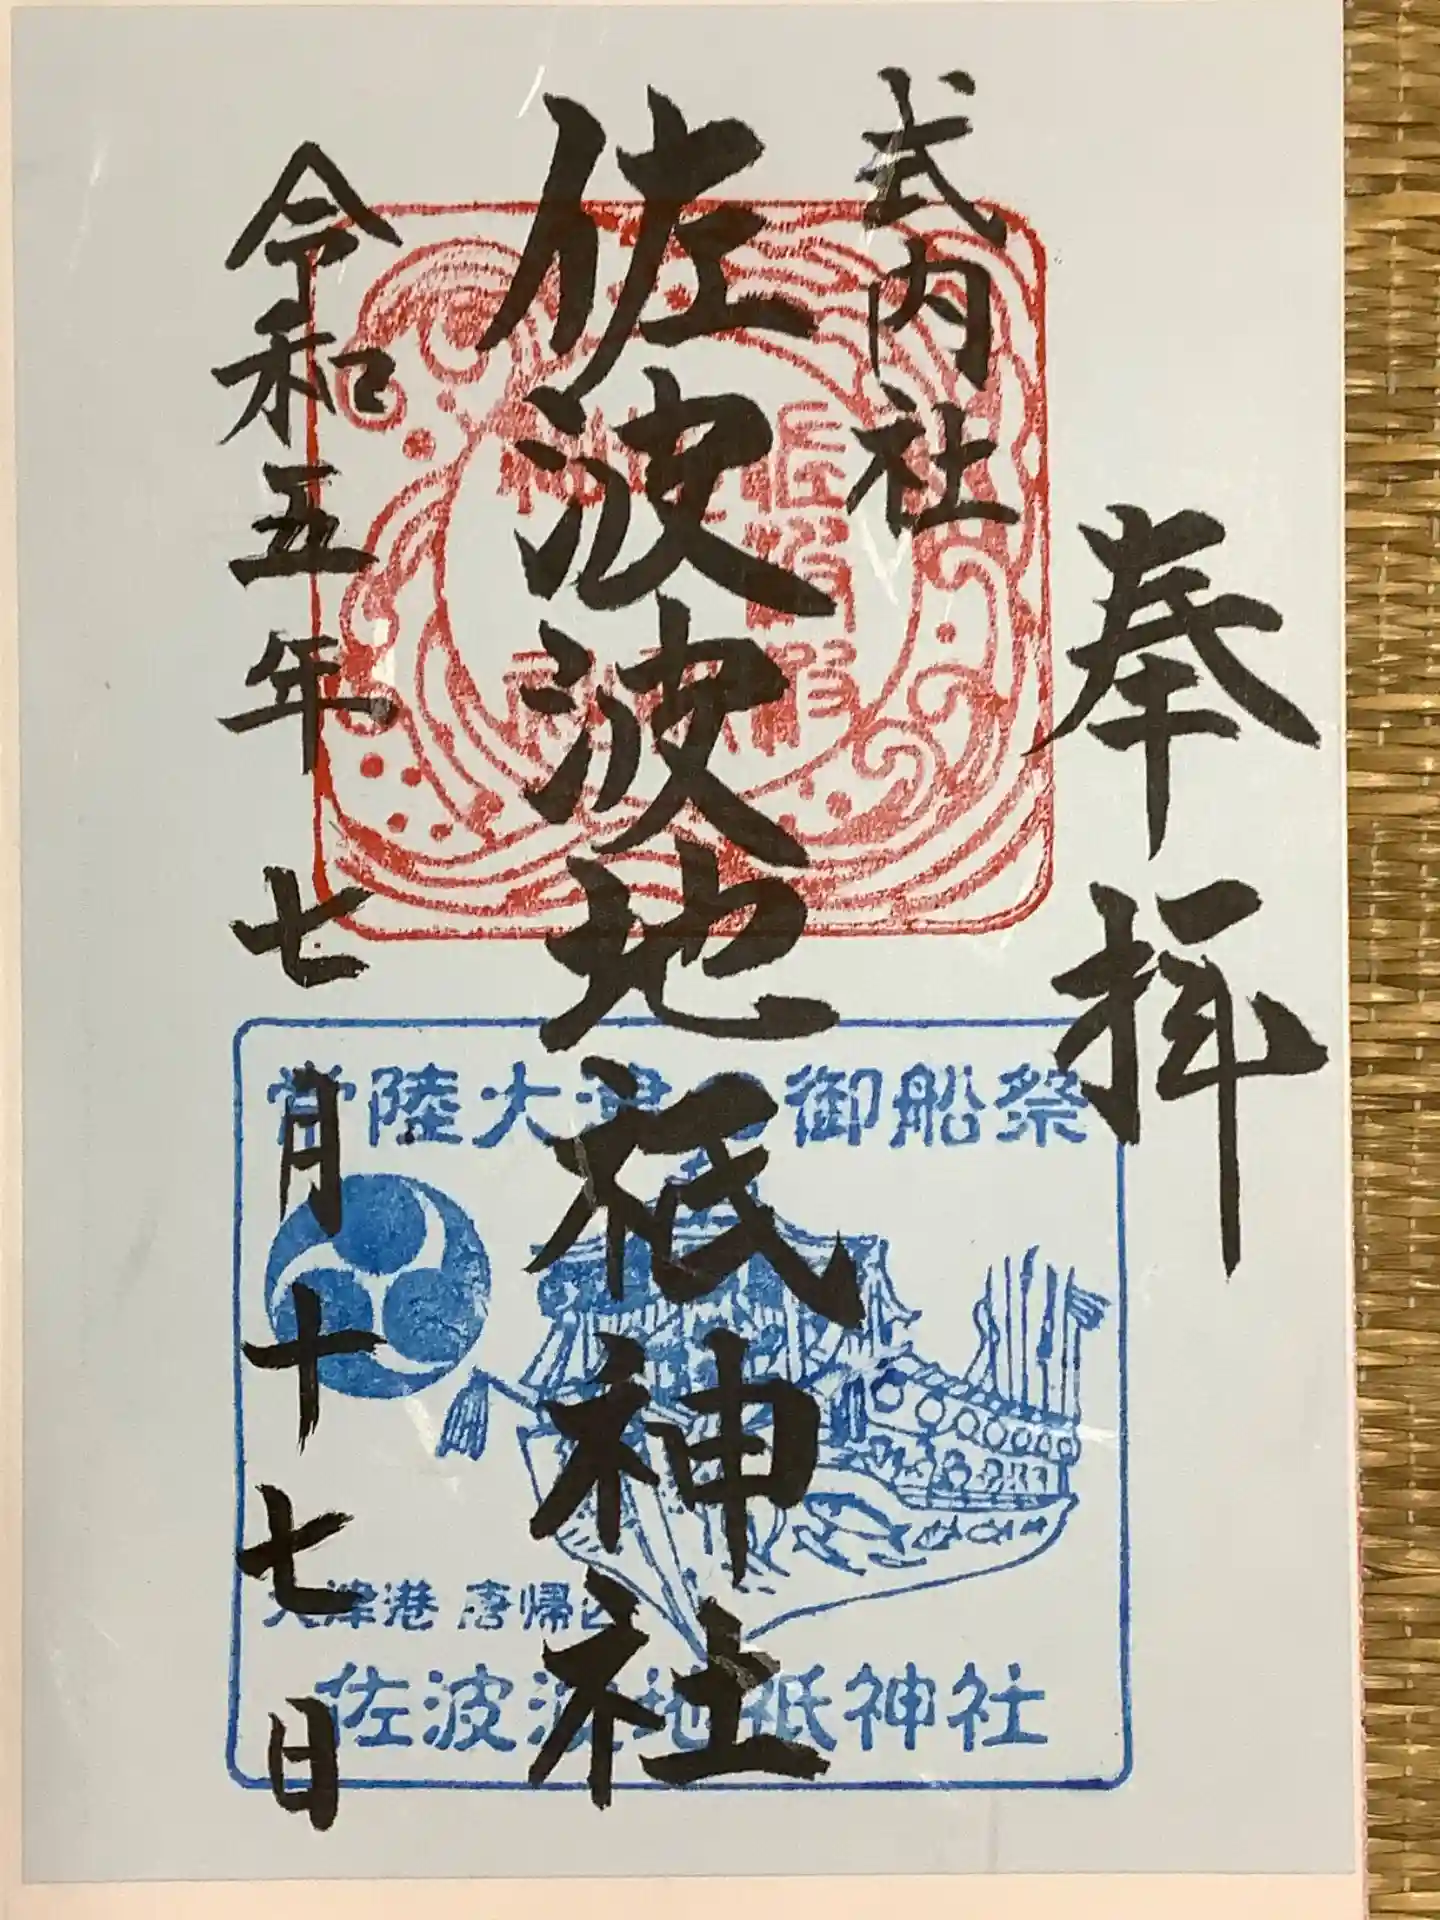 奉拝
式内社
佐波波地祇神社
令和五年七月十七日
常陸大津の御船祭
大津港 唐帰山
佐波波地祇神社